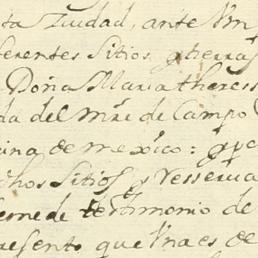 ta Ziudad, ante Vn
ferentes Sitios, y tierras
Doña Maria theress
da del Mre de Campo
cina de mexico: y pe
chos Sitios, y Resserua
seme de testimonio de
resento que Vna es de